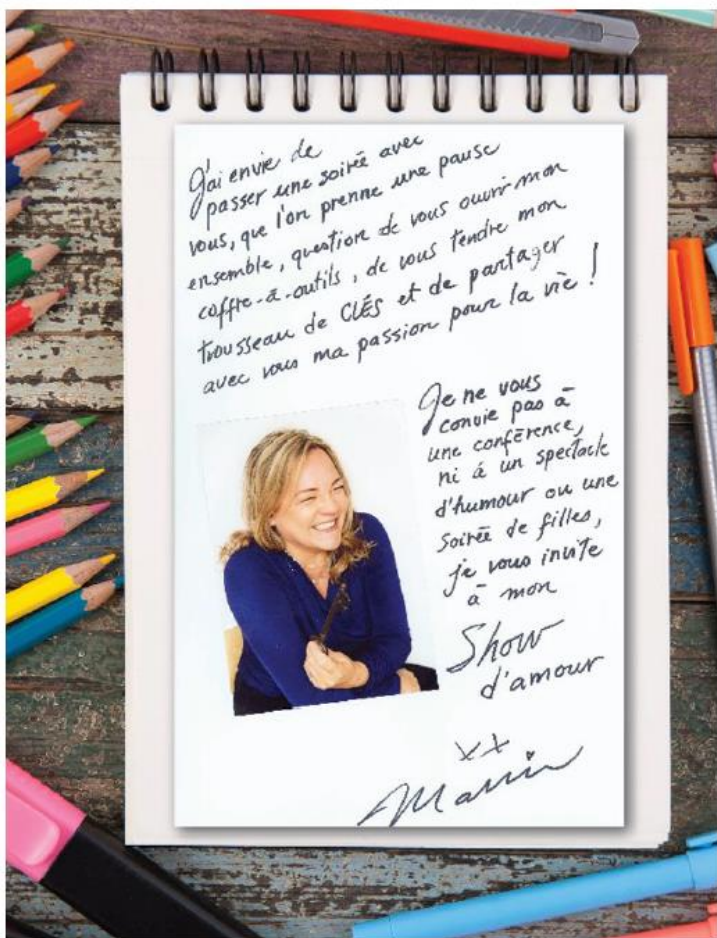 J'ai envie de
passer une soirée avec
vous, que l'on prenne une pause
ensemble, question de vous ouvrir mon
coffre-à-outils, de vous tendre mon
trousseau de CLÉS et de partager
avec vous ma passion pour la vie !
Je ne vous
convie pas à
une conférence,
ni à un spectacle
d'humour ou une
soirée de filles,
je vous invite
à mon
Show
d'amour
xx